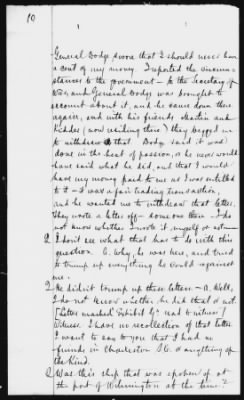 10
General Dodge swore that I should never have
a cent of my money. I reported the circum-
stances to the government - to the Secretary of
War, and General Dodge was brought to
account about it, and he came down there
again, and with his friends Martin and
(now residing there) they begged me
to withdraw that. Dodge said it was
done in the heat of passion, or he never would
have said what he did, and that I would
have my money paid to me as I was entitled
to it - I was a fair trading transaction,
and he wanted me to withdraw that letter.
They wrote a letter off - someone then - I do
not know whether I wrote it myself or not
Q I don't see what that has to do with this
question. A. Why, he was here, and tried
to trump up everything he could against
me.
Q He didn't trump up these letters - A. Well,
I do not know whether he did that or not.
[Letter marked "Exhibit G" read to witness]
Witness. I have no recollection of that letter
I want to say to you that I had no
friends in Charleston S.C. or anything of
the kind.
Q Was this ship that was spoken of at
the port of Wilmington at the time?